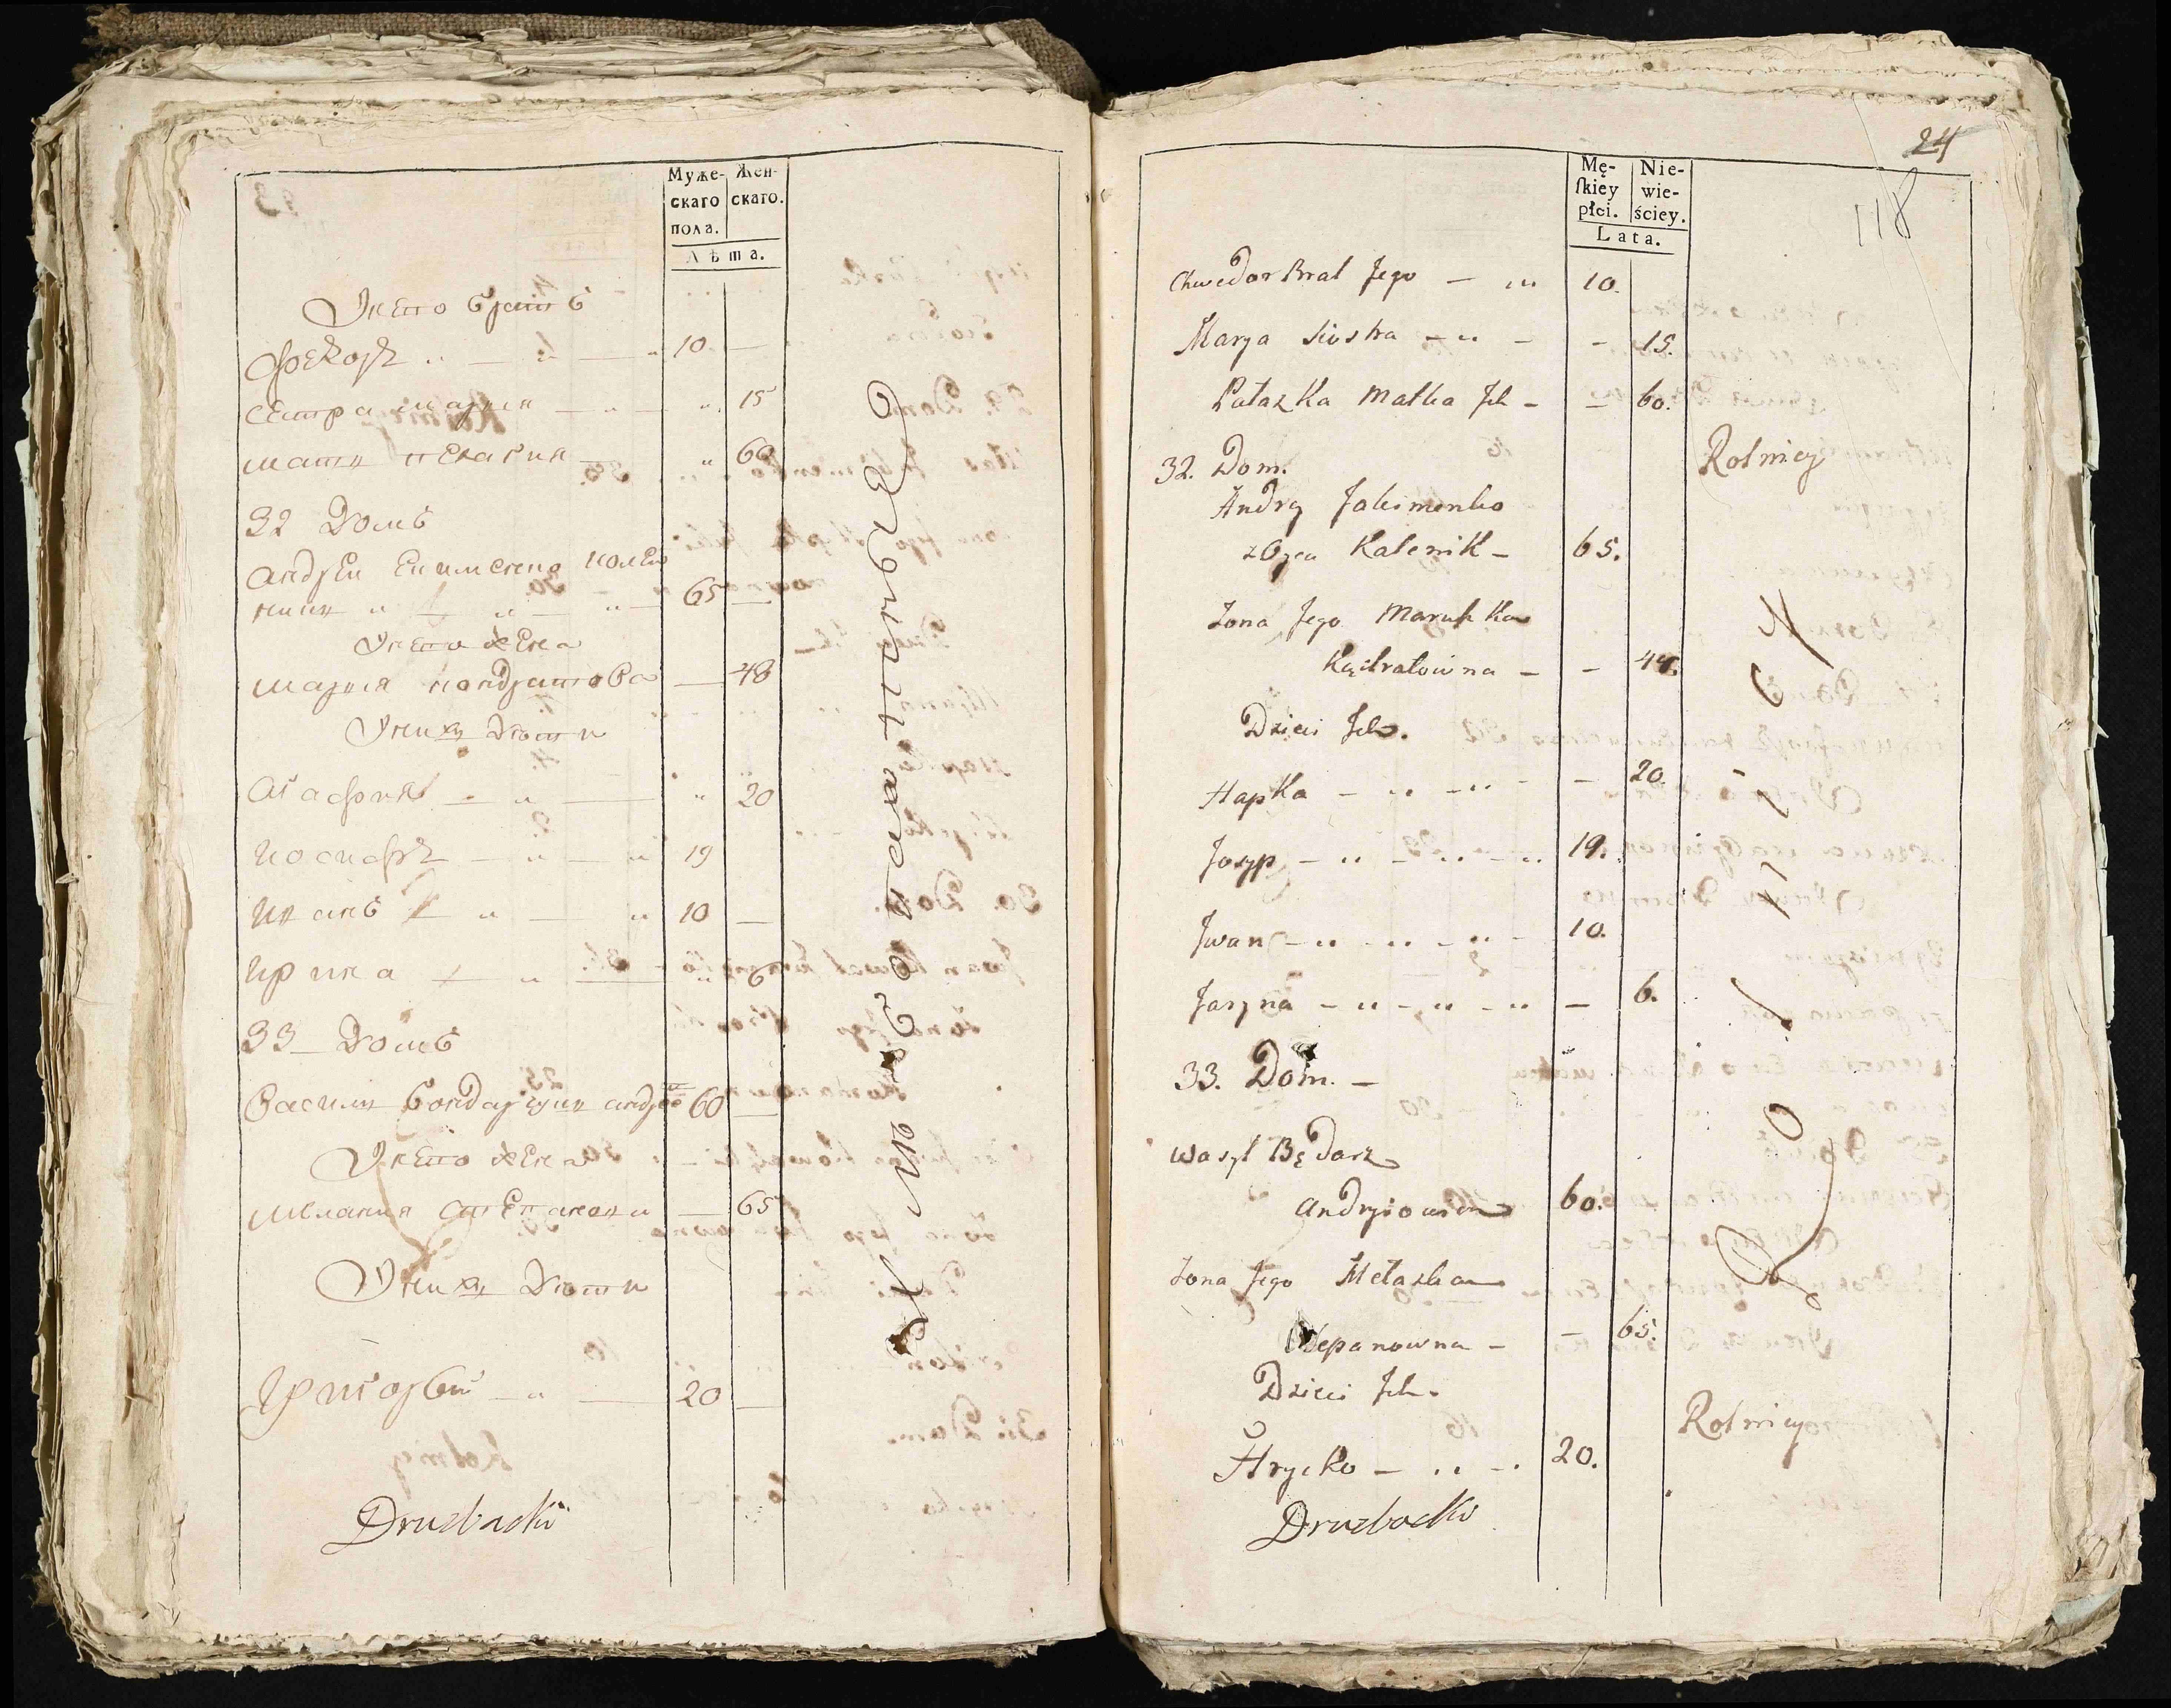 Муже-
скаго
пола.
Жен-
скаго.
Лѣта.
У него братъ
Федоръ 10
сестра мария 15
мати пелагия 60
32 Домъ
андреи Екименко колен
ники 65
У него жена
мария кондратова 48
У них дѣти
Агафия 20
иосифъ 19
иванъ 10
ирина 6
33 Домъ
Василии бондар сын андре 60
У него жена
мелания степанова 65
У них дѣти
Григорѣи 20
Druzbacki
24
118
Mę-
skiey
płci.
Nie-
wie-
ściey.
Lata.
Chwedor Brat Jego 10.
Marya Siostra 15.
Pałazka Matka Ich 60.
32. Dom. Rolnicy
Andry Jakimenko
z Oyca Kalenik 65.
Zona Jego Maruszka
Kądratowna 48.
Dzieci Ich.
Hapka 20.
Josyp 19.
Jwan 10.
Jaryna 6.
33. Dom.
Wasyl Będarz
Andryiowicz 60.
Zona Jego Melaszka
Stepanowna 65.
Dzieci Ich. Rolnicy
Hrycko 20.
Druzbacki